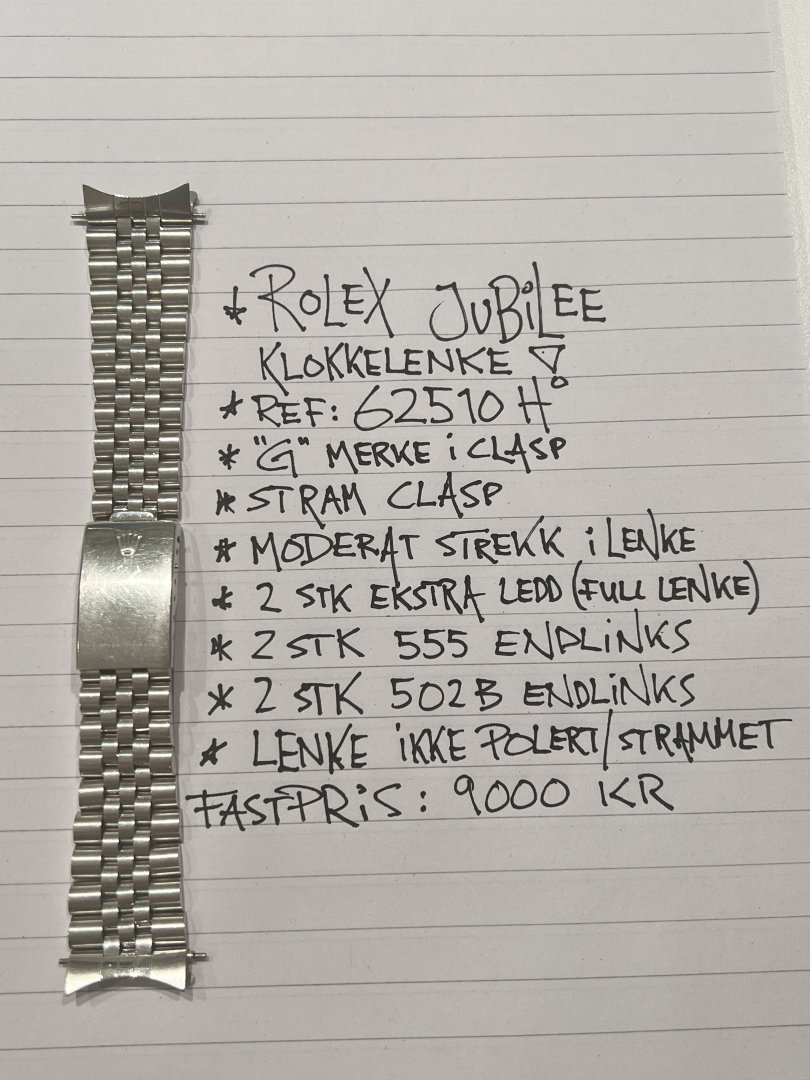 * ROLEX JUBiLEE
KLOKKELENKE
* REF: 62510 H
* "G" MERKE i CLASP
* STRAM CLASP
* MODERAT STREKK i LENKE
* 2 STK EKSTRA LEDD (FULL LENKE)
* 2 STK 555 ENDLiNKS
* 2 STK 502B ENDLiNKS
* LENKE iKKE POLERT/STRAMMET
FASTPRiS: 9000 KR